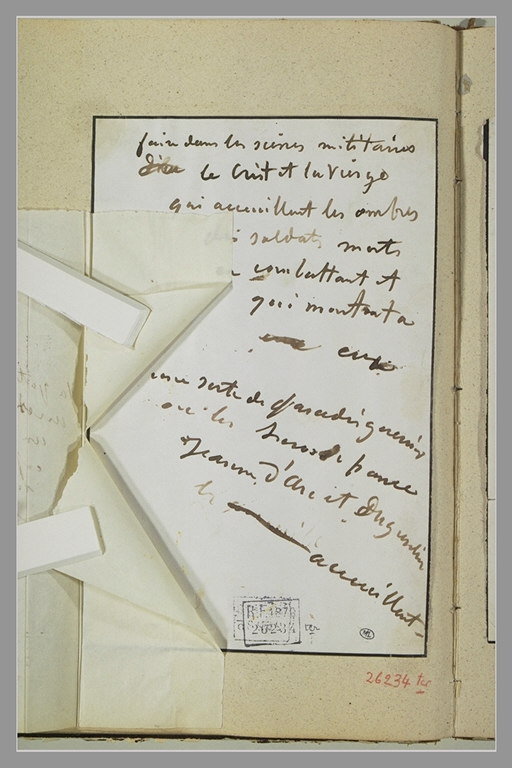 faire dans les scènes militaires
le Crist et la Vierge
qui accueillent les ombres
soldats morts
combattant et
qui montent a
eux
une sorte de paradis guerrier
ou les heros de france
Jeanne d'Arc et Duguesclin
les
accueillent
R.F.
26234
26234 ter